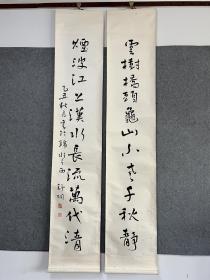 雲樹橋頭龜山小千秋靜
煙波江上漢水長流萬代清
乙丑秋月書於